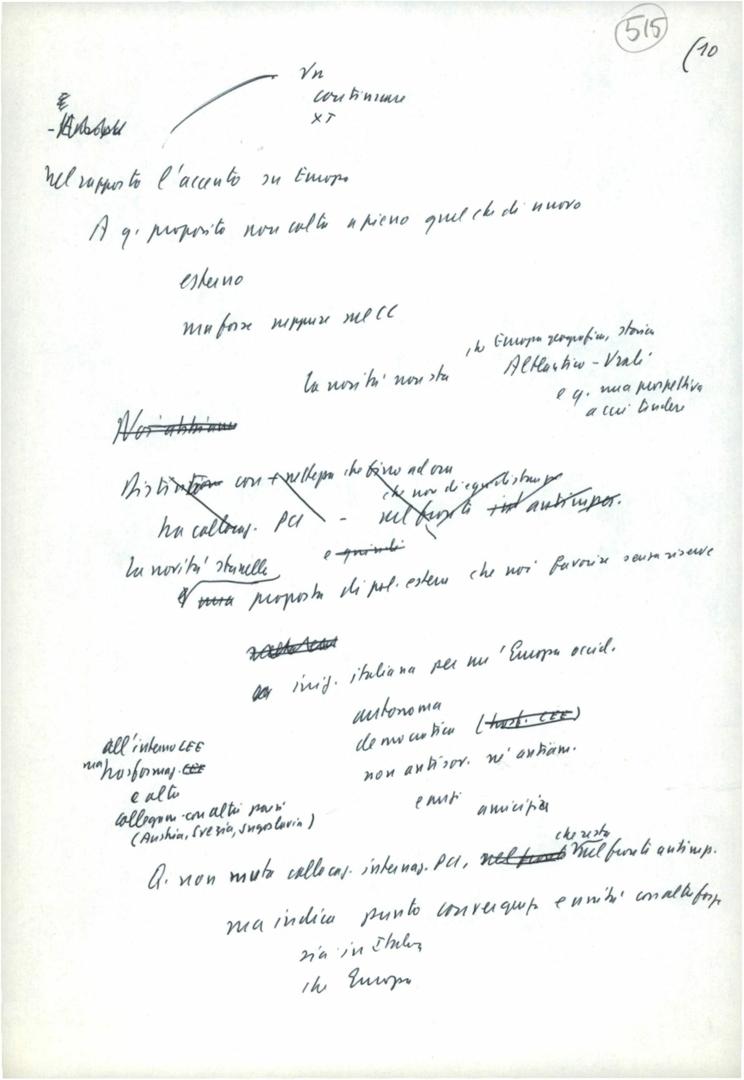 515
(10
Vn
continuare
XT
E
Nel rapporto l'accento su Europa
A q. proposito non colto a pieno quel che di nuovo
esterno
ma forse neppure nel CC
La novità non sta
in Europa geografica, storica
Atlantico - Urali
e q. una prospettiva
a cui tendere
Noi abbiamo
Distinzione con + nettezza che fino ad ora
che non di equidistanza
ha collocaz. PCI - nel fronte int antimper.
La novità sta nelle
e quindi
una proposta di pol. estera che noi favorire senza riserve
iniz. italiana per un'Europa occid.
autonoma
democratica (trasf. CEE)
non antisov. né antiam.
amicizia
all'interno CEE
ma trasformaz. CEE
e alto
collegam. con altri paesi
(Austria, Svezia, Jugoslavia)
Q. non muta collocaz. internaz. PCI, nel fronte
che resta
nel fronte antimp.
ma indica punto convergenza e unità con altre forze
sia in Italia
che Europa